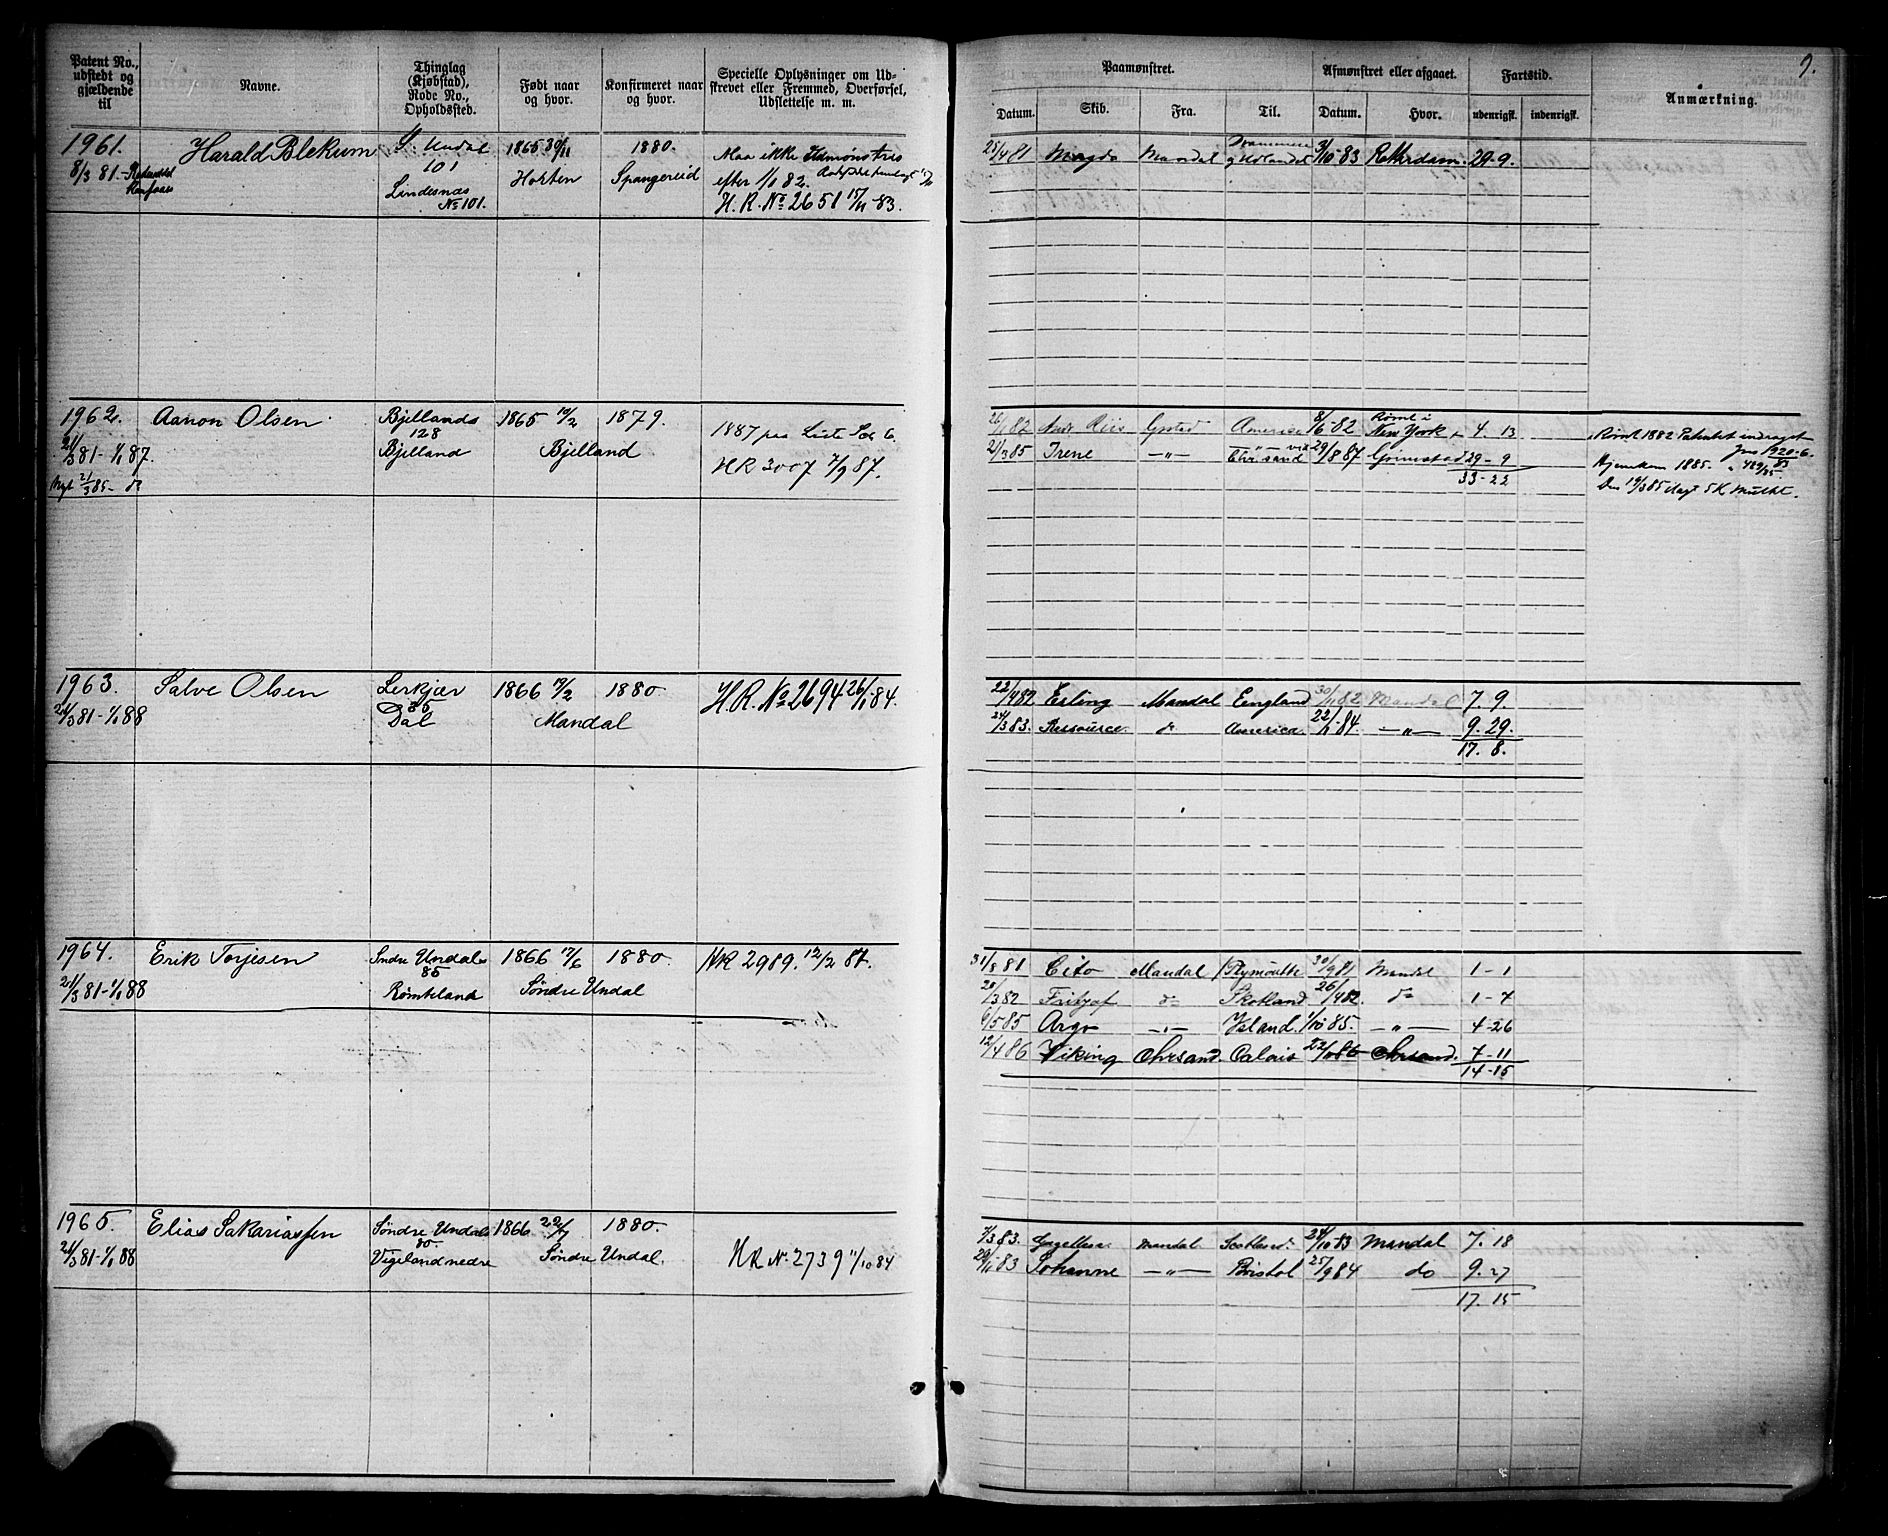 9.
Patent No., udstedt og gjældende til
Navne.
Thinglag (Kjøbstad), Rode No., Opholdssted.
Født naar og hvor.
Konfirmeret naar og hvor.
Specielle Oplysninger om Udskrevet eller Fremmed, Overførsel, Udslettelse m. m.
Paamønstret.
Afmønstret eller afgaaet.
Fartstid.
Anmærkning.
Datum. Skib. Fra. Til. Datum. Hvor. udenrigsk. indenrigsk.
1961. Harald Blekum S. Undal 1865 30/11 1880.
8/3 81 101 Horten Spangereid
Lindesnæs
No 101.
Maa ikke Udmønstres
efter 1/1 82.
H. R. No 2651 15/11 83.
25/4 81 Magda Mandal 3/10 83 Rotterdam. 29-9.
1962. Aanon Olsen Bjellands 1865 19/2 1879.
21/3 81-1/1 87. 128 Bjelland
Bjelland
Nyt 21/3 85 - do
1887 paa Liste
HR 3007 7/9 87.
26/1 82 Ystad America 8/6 82 Rømt i New York 4. 13
21/3 85 Irene -"- Chrsand 29/8 87 Grimstad 29-9
33-22
Rømt 1882 Patentet inddraget
Jns 1920-6.
83
Hjemkom 1885.
Den 19/3 85 5 K Mulkt.
1963. Salve Olsen Lerkjær 1866 19/2 1880.
21/3 81-1/1 88 85 Mandal
Dal
H. R. No 2694 26/1 84.
22/4 82 Erling Mandal England 30/11 82 Mandal 7. 9.
24/3 83. Ressource. do America. 22/1 84. -"- 9. 29.
17. 8.
1964. Erik Torjesen Søndre Undals 1866 17/6 1880.
21/3 81-1/1 88 85 Søndre Undal
HR 2989. 12/2 87.
31/8 81 Cito Mandal Plymouth 30/9 81 Mandal 1-1
20/3 82 Fritjof do Skotland 26/4 82. do 1-7
6/5 85 Argo -"- Island. 1/10 85. -"- 4-26
12/4 86 Viking Chrsand. Calais 22/11 86 Chrsand. 7-11
14-15
1965. Elias Sakariassen Søndre Undals 1866 22/7 1880.
21/3 81-1/1 88 80 Søndre Undal.
Vigeland nedre
HR No. 2739 11/10 84
7/3 83. Mandal Scotland. 24/10 83 Mandal 7. 18
29/11 83 Johanne -"- Bristol 25/9 84 do 9. 27
17. 15